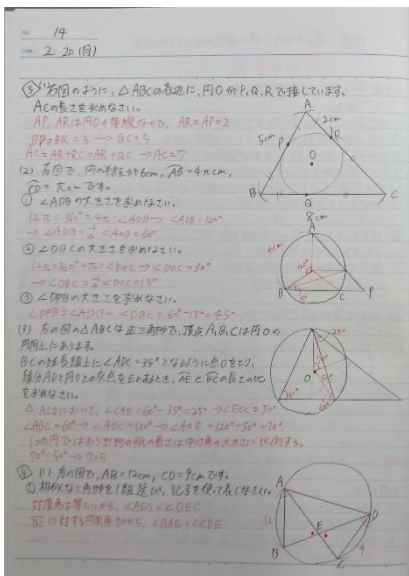 14
2 20(月)
右図のように、△ABCの各辺に、円OがP,Q,Rで接しています。
ACの長さを求めなさい。
AP, ARは円Oの接線なので、AR=AP=2
BP=BQ=3 → QC=5
AC=AR+RC=AR+QC → AC=7
(2) 右図で、円の半径が6cm, AB=4πcm,
CD=πcmです。
① ∠ADBの大きさを求めなさい。
12π:360°=4π:∠AOB → ∠AOB=120°
→ ∠ADB=1/2∠AOB=60°
② ∠DBCの大きさを求めなさい。
12π:360°=π:∠DOC → ∠DOC=30°
→ ∠DBC=1/2∠DOC=15°
③ ∠DPBの大きさを求めなさい。
∠DPB=∠ADB-∠DBC=60°-15°=45°
(3) 右の図の△ABCは正三角形で、頂点A,B,Cは円Oの
円周上にあります。
BCの延長線上に∠ADC=35°となるように点Dをとり、
線分ADと円Oとの交点をEとするとき、AEとECの長さの比
を求めなさい。
△ACDにおいて、∠CAD=60°-35°=25° → ∠EOC=50°
∠ABC=60° → ∠AOC=120° → ∠AOE=120°-50°=70°
1つの円ではおうぎ形の弧の長さは中心角の大きさに比例する。
70°:50° → 7:5
④ (1) 右の図で、AB=12cm, CD=9cmです。
① 相似な三角形を1組選び、記号を使って表しなさい。
対頂角は等しいから、∠AEB=∠DEC
BCに対する円周角だから、∠BAE=∠CDE
A
2cm
R
5cm
P
O
B
Q
C
8cm
A
B
C
P
25°
O
60°
A
12
B
E
D
C
9